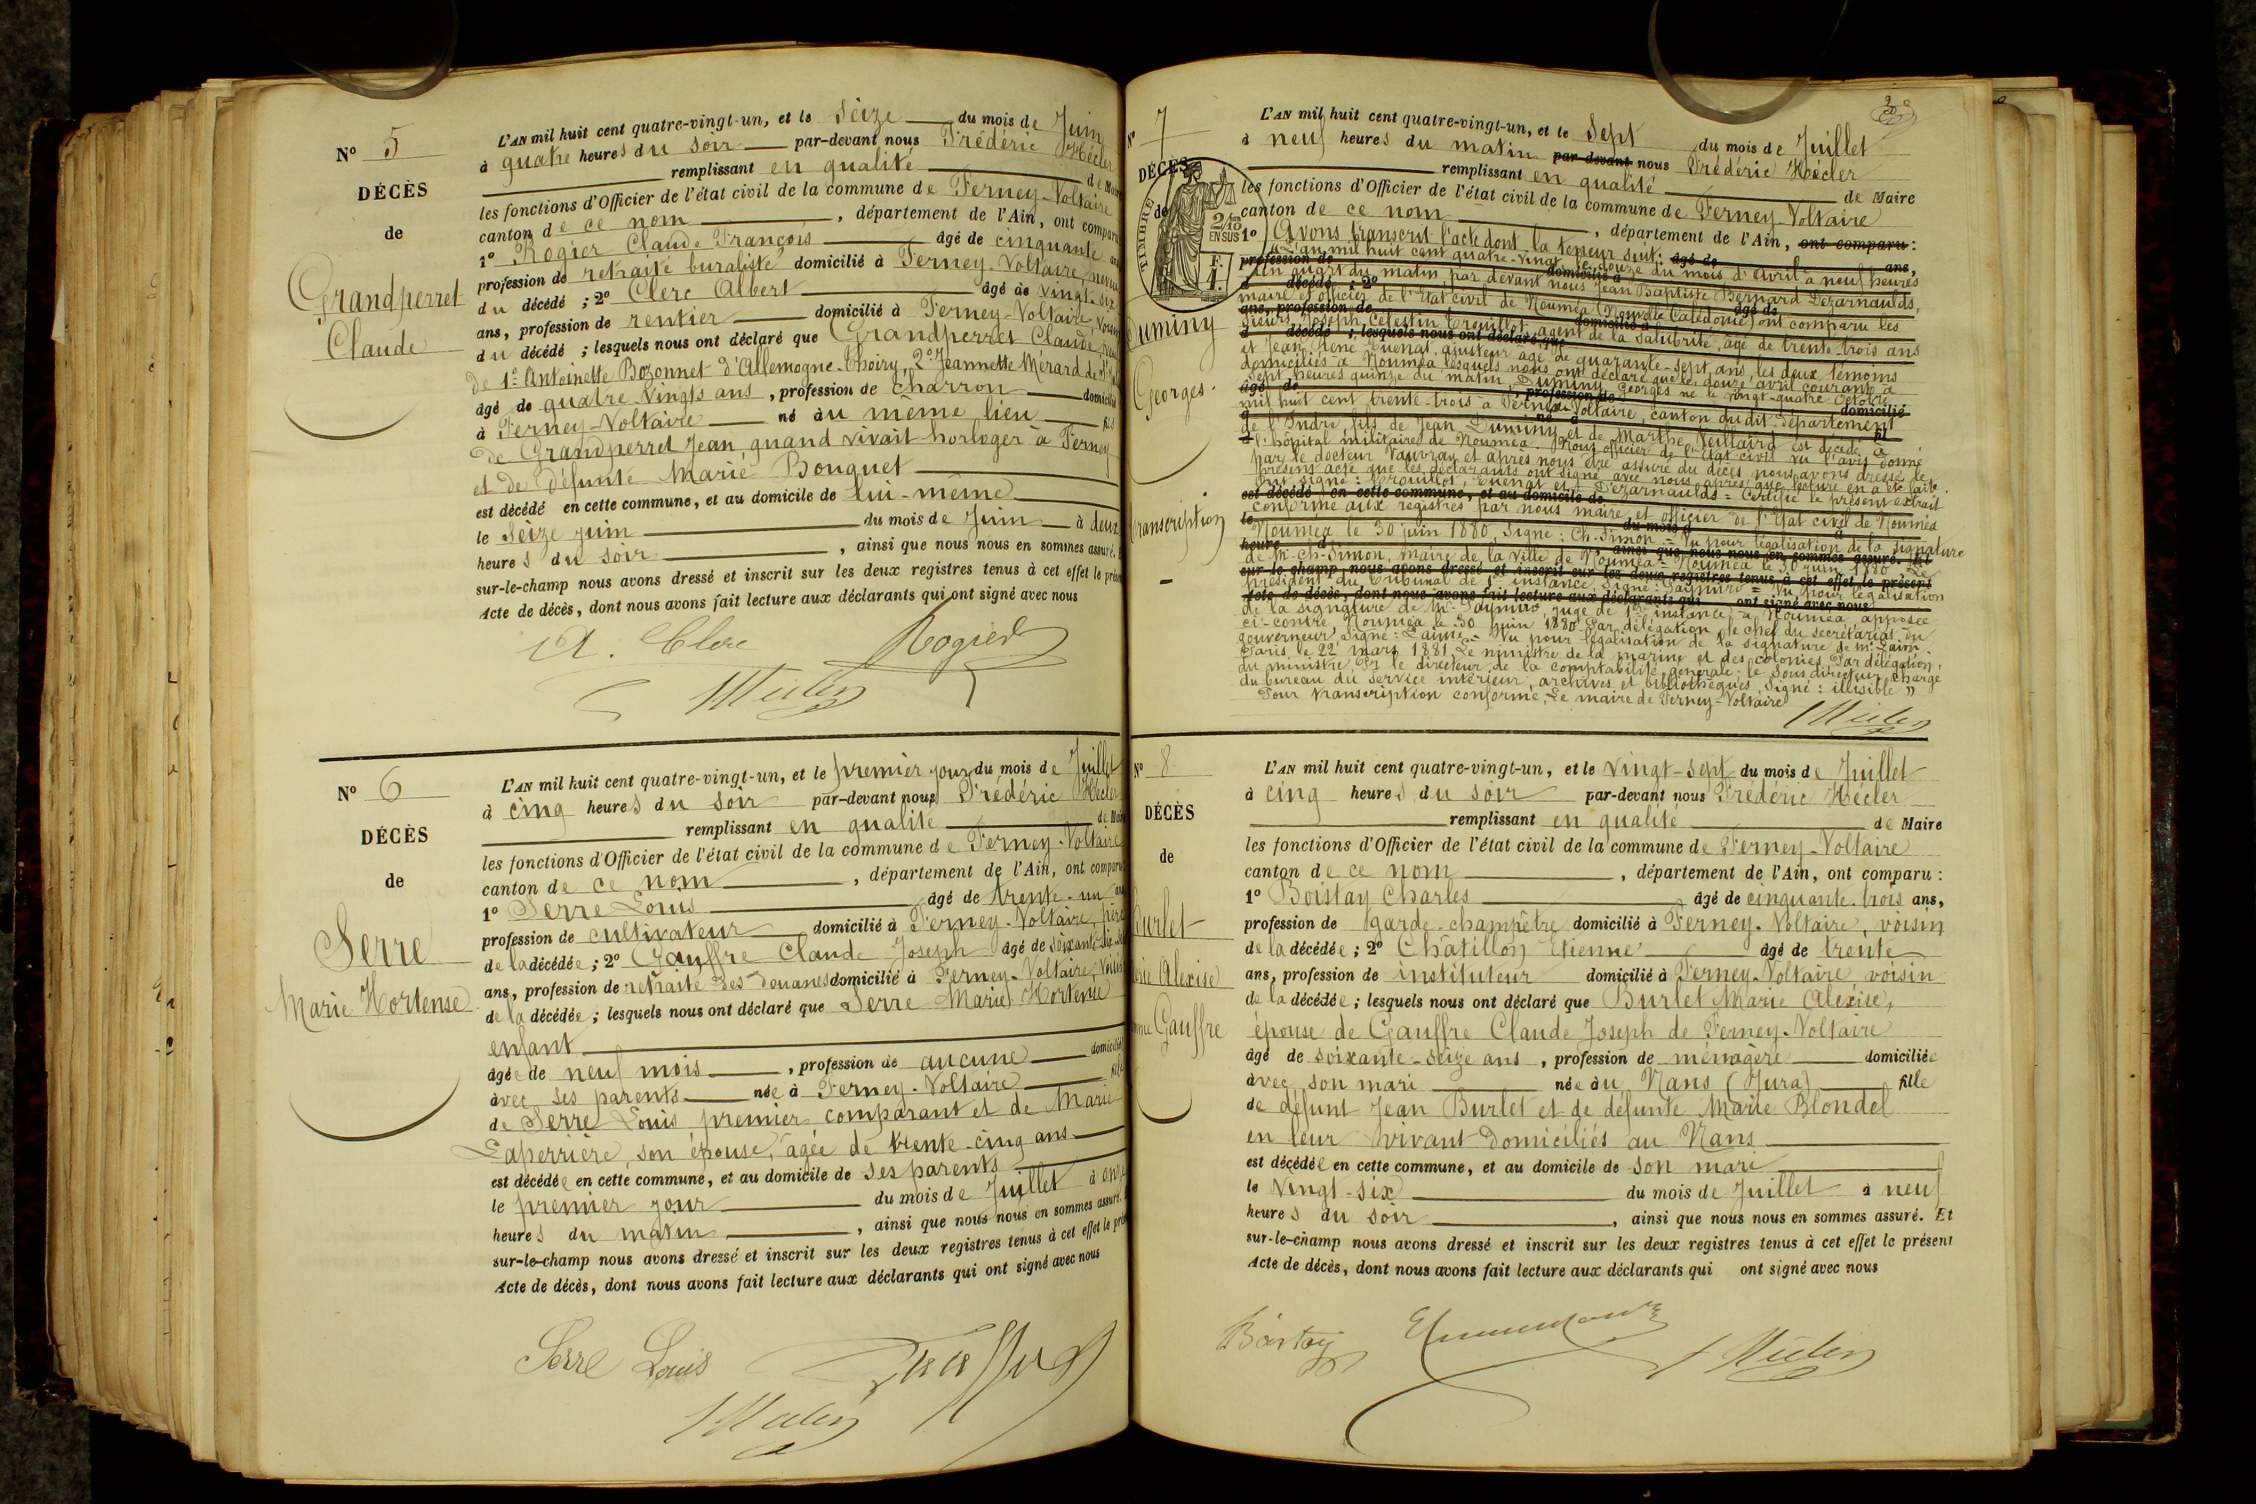 N° 5
DÉCÈS
de
Grandperret
Claude
L'AN mil huit cent quatre-vingt-un, et le Seize du mois de Juin
à quatre heures du soir par-devant nous Frédéric Hécler
remplissant en qualité de Maire
les fonctions d'Officier de l'état civil de la commune de Ferney-Voltaire
canton de ce nom, département de l'Ain, ont comparu
1° Rogier Claude François âgé de cinquante ans
profession de retraité buraliste domicilié à Ferney-Voltaire, neveu
du décédé ; 2° Clerc Albert âgé de vingt-six
ans, profession de rentier domicilié à Ferney-Voltaire, voisin
du décédé ; lesquels nous ont déclaré que Grandperret Claude,
de 1° Antoinette Bozonnet d'Allemogne-Thoiry, 2° Jeannette Mérard de
âgé de quatre-vingts ans, profession de charron domicilié
à Ferney-Voltaire né au même lieu fils
de Grandperret Jean, quand vivait horloger à Ferney
et de défunte Marie Bouquet
est décédé en cette commune, et au domicile de lui-même
le Seize juin du mois de Juin à deux
heures du soir, ainsi que nous nous en sommes assuré.
sur-le-champ nous avons dressé et inscrit sur les deux registres tenus à cet effet le présent
Acte de décès, dont nous avons fait lecture aux déclarants qui ont signé avec nous
A. Clerc Rogier
Hécler
N° 6
DÉCÈS
de
Serre
Marie Hortense
L'AN mil huit cent quatre-vingt-un, et le premier jour du mois de Juillet
à cinq heures du soir par-devant nous Frédéric Hécler
remplissant en qualité de Maire
les fonctions d'Officier de l'état civil de la commune de Ferney-Voltaire
canton de ce nom, département de l'Ain, ont comparu
1° Serre Louis âgé de trente-un ans
profession de cultivateur domicilié à Ferney-Voltaire, père
de la décédée ; 2° Gauffre Claude Joseph âgé de soixante-six
ans, profession de retraité des douanes domicilié à Ferney-Voltaire, voisin
de la décédée ; lesquels nous ont déclaré que Serre Marie Hortense
enfant
âgée de neuf mois, profession de aucune domiciliée
avec ses parents née à Ferney-Voltaire fille
de Serre Louis premier comparant et de Marie
Laperrière, son épouse, âgée de trente-cinq ans
est décédée en cette commune, et au domicile de ses parents
le premier jour du mois de Juillet à onze
heures du matin, ainsi que nous nous en sommes assuré.
sur-le-champ nous avons dressé et inscrit sur les deux registres tenus à cet effet le présent
Acte de décès, dont nous avons fait lecture aux déclarants qui ont signé avec nous
Serre Louis Gauffre
Hécler
N° 7
DÉCÈS
de
TIMBRE
2/10
EN SUS
Duminy
Georges
Transcription
L'AN mil huit cent quatre-vingt-un, et le Sept du mois de Juillet
à neuf heures du matin par-devant nous Frédéric Hécler
remplissant en qualité de Maire
les fonctions d'Officier de l'état civil de la commune de Ferney-Voltaire
canton de ce nom, département de l'Ain, ont comparu :
1° Avons transcrit l'acte dont la teneur suit:
"L'an mil huit cent quatre-vingt le douze du mois d'Avril à neuf heures
un quart du matin par devant nous Jean Baptiste Bernard Dezarnaulds,
maire et officier de l'Etat civil de Nouméa (Nouvelle Calédonie) ont comparu les
sieurs Joseph Célestin Trouillot, agent de la salubrité, âgé de trente-trois ans
et Jean René Euenat, ajusteur âgé de quarante-sept ans, les deux témoins
domiciliés à Nouméa lesquels nous ont déclaré que le douze avril courant à
sept heures quinze du matin, Duminy Georges né le vingt-quatre Octobre
mil huit cent trente-trois à Ferney-Voltaire, canton dudit département
de l'Indre, fils de Jean Duminy et de Marthe Veillaird est décédé à
l'hôpital militaire de Nouméa. Nous officier de l'Etat civil vu l'avis donné
par le docteur Vauvray et après nous être assuré du décès nous avons dressé le
présent acte que les déclarants ont signé avec nous après que lecture en a été faite.
Ont signé : Trouillot, Euenat et Dezarnaulds = Certifié le présent extrait
conforme aux registres par nous maire et officier de l'Etat civil de Nouméa
Nouméa le 30 juin 1880, Signé : Ch. Simon = Vu pour légalisation de la signature
de Mr Ch. Simon, maire de la ville de Nouméa = Nouméa le 30 juin 1880. Le
président du Tribunal de 1ère instance, Signé : = Vu pour légalisation
de la signature de Mr juge de 1ère instance à Nouméa apposée
ci-contre, Nouméa le 30 juin 1880 Par délégation, le chef du secrétariat du
gouverneur, Signé : Laimé = Vu pour légalisation de la signature de Mr Laimé.
Paris le 22 mars 1881, Le ministre de la marine et des colonies Par délégation,
du ministre Pr le directeur de la comptabilité générale, le Sous directeur chargé
du bureau du service intérieur, archives et bibliothèques, Signé : illisible "
Pour transcription conforme, Le maire de Ferney-Voltaire
Hécler
N° 8
DÉCÈS
de
Burlet
Marie Alexise
femme Gauffre
L'AN mil huit cent quatre-vingt-un, et le vingt-sept du mois de Juillet
à cinq heures du soir par-devant nous Frédéric Hécler
remplissant en qualité de Maire
les fonctions d'Officier de l'état civil de la commune de Ferney-Voltaire
canton de ce nom, département de l'Ain, ont comparu :
1° Boistay Charles âgé de cinquante-trois ans,
profession de garde-champêtre domicilié à Ferney-Voltaire, voisin
de la décédée ; 2° Châtillon Etienne âgé de trente
ans, profession de instituteur domicilié à Ferney-Voltaire voisin
de la décédée ; lesquels nous ont déclaré que Burlet Marie Alexise,
épouse de Gauffre Claude Joseph de Ferney-Voltaire
âgé de soixante-seize ans, profession de ménagère domiciliée
avec son mari née au Nans (Jura) fille
de défunt Jean Burlet et de défunte Marie Blondel
en leur vivant domiciliés au Nans
est décédée en cette commune, et au domicile de son mari
le vingt-six du mois de Juillet à neuf
heures du soir, ainsi que nous nous en sommes assuré. Et
sur-le-champ nous avons dressé et inscrit sur les deux registres tenus à cet effet le présent
Acte de décès, dont nous avons fait lecture aux déclarants qui ont signé avec nous
Boistay
Hécler